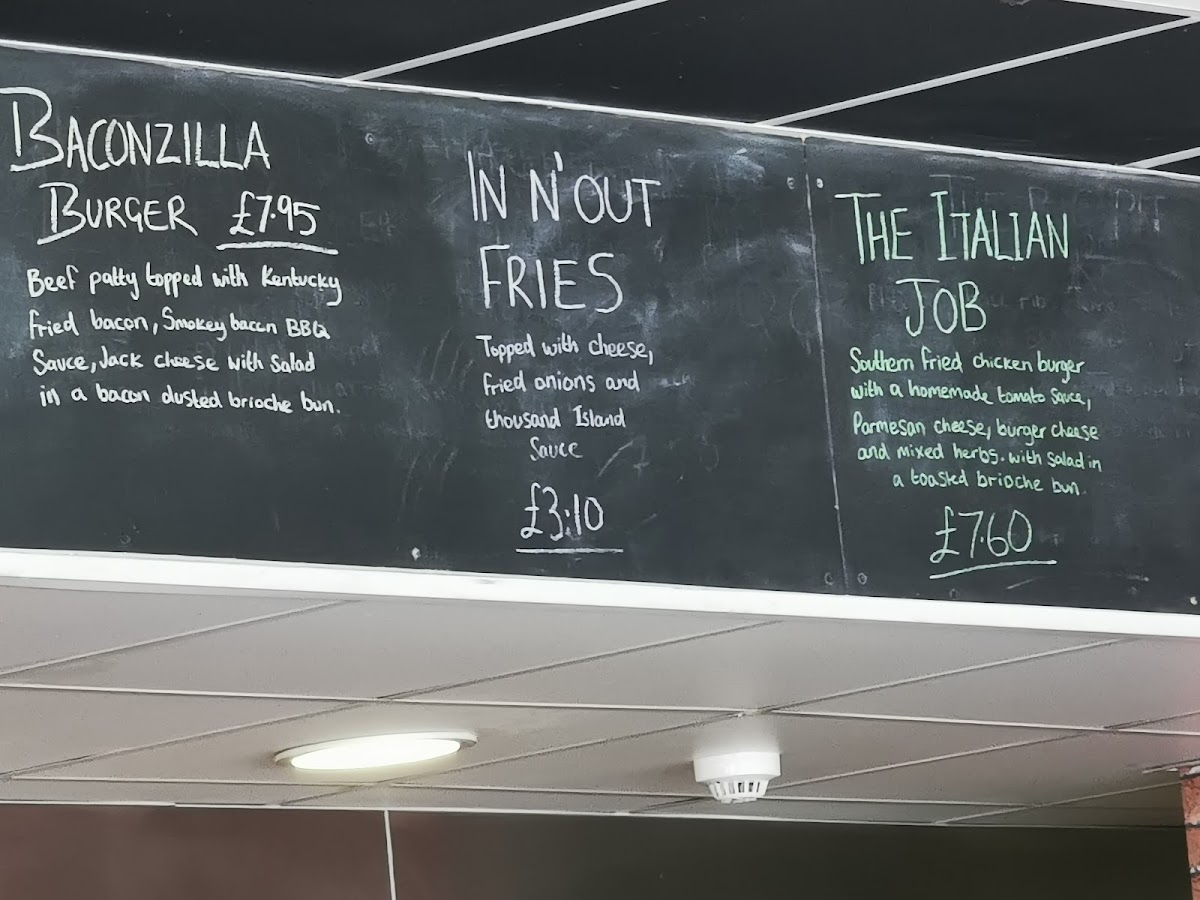 BACONZILLA
BURGER £7.95
Beef patty topped with Kentucky
fried bacon, Smokey bacon BBQ
Sauce, Jack cheese with Salad
in a bacon dusted brioche bun.
IN N' OUT
FRIES
Topped with cheese,
fried onions and
thousand Island
Sauce
£3.10
THE ITALIAN
JOB
Southern fried chicken burger
with a homemade tomato sauce,
Parmesan cheese, burger cheese
and mixed herbs. with salad in
a toasted brioche bun.
£7.60